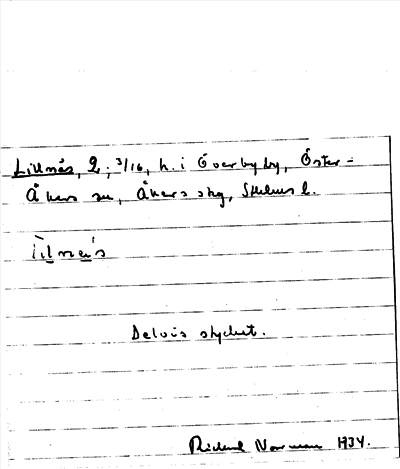 Lillnäs, 2; 3/16, h. i Överbyby, Öster-
Åkers sn, Åkers skg, Sthlms l.
Delvis stycket.
Rickard Norman 1934.